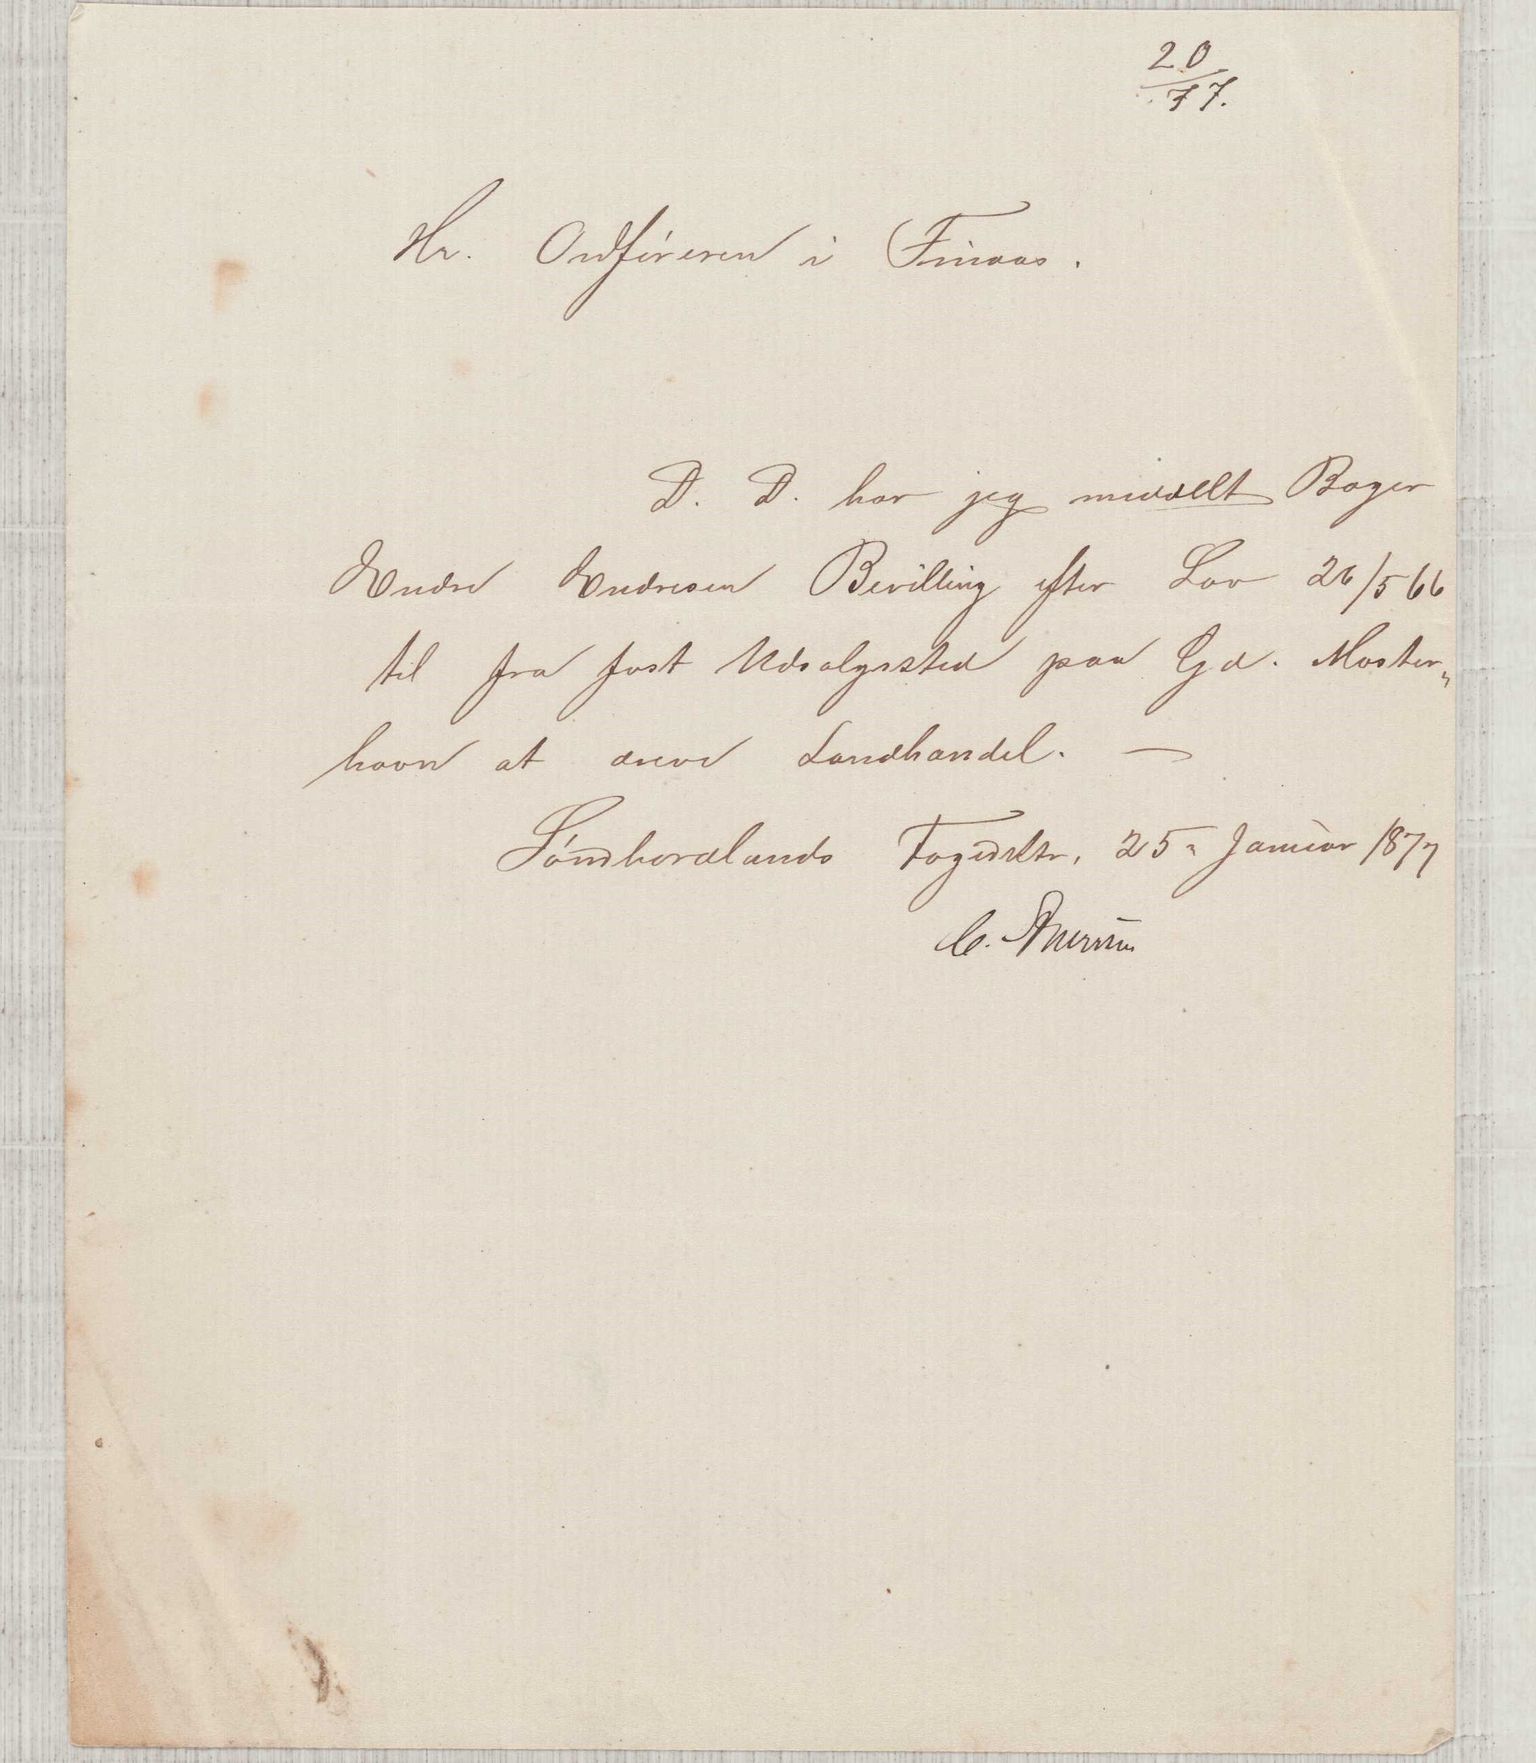 20
77.
Hr. Ordføreren i Finaas.
D. D. har jeg meddelt Bager
Endre Endresen Bevilling efter Lov 26/5 66
til fra fast Udsalgssted paa Gd. Moster„
havn at drive Landhandel. —
Søndhordlands Fogedktr, 25 Januar 1877
C.